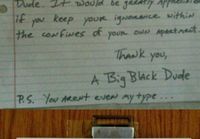 Dude. It would be greatly appreciated
if you keep your ignorance within
the confines of your own apartment.
Thank you,
A Big Black Dude
P.S. You aren't even my type...